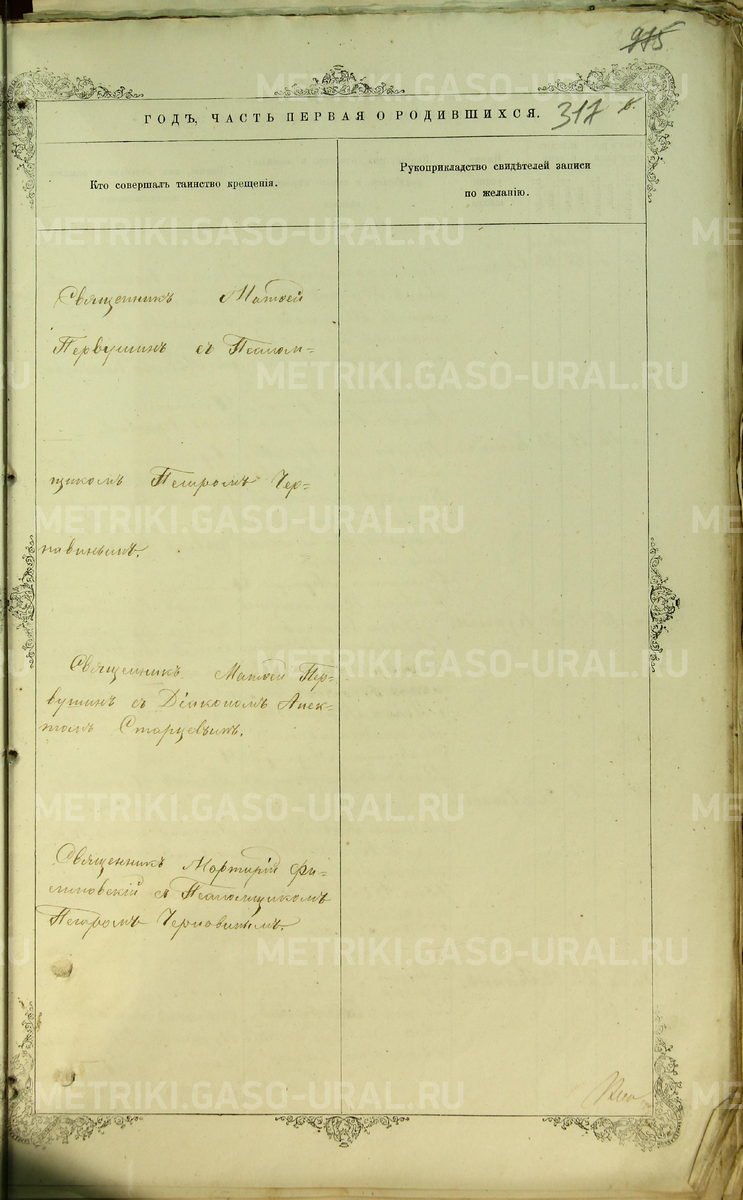 915
317
ГОДЪ, ЧАСТЬ ПЕРВАЯ О РОДИВШИХСЯ.
Кто совершалъ таинство крещенія.
Рукоприкладство свидѣтелей записи
по желанію.
Священникъ Матѳей
Первушинъ съ Псалом=
щикомъ Петромъ Чер=
навинымъ.
Священникъ Матѳей Пер=
вушинъ съ Діакономъ
Старцевымъ.
Священникъ Мартирій
съ Псаломщикомъ
Петромъ Черновинымъ.
METRIKI.GASO-URAL.RU